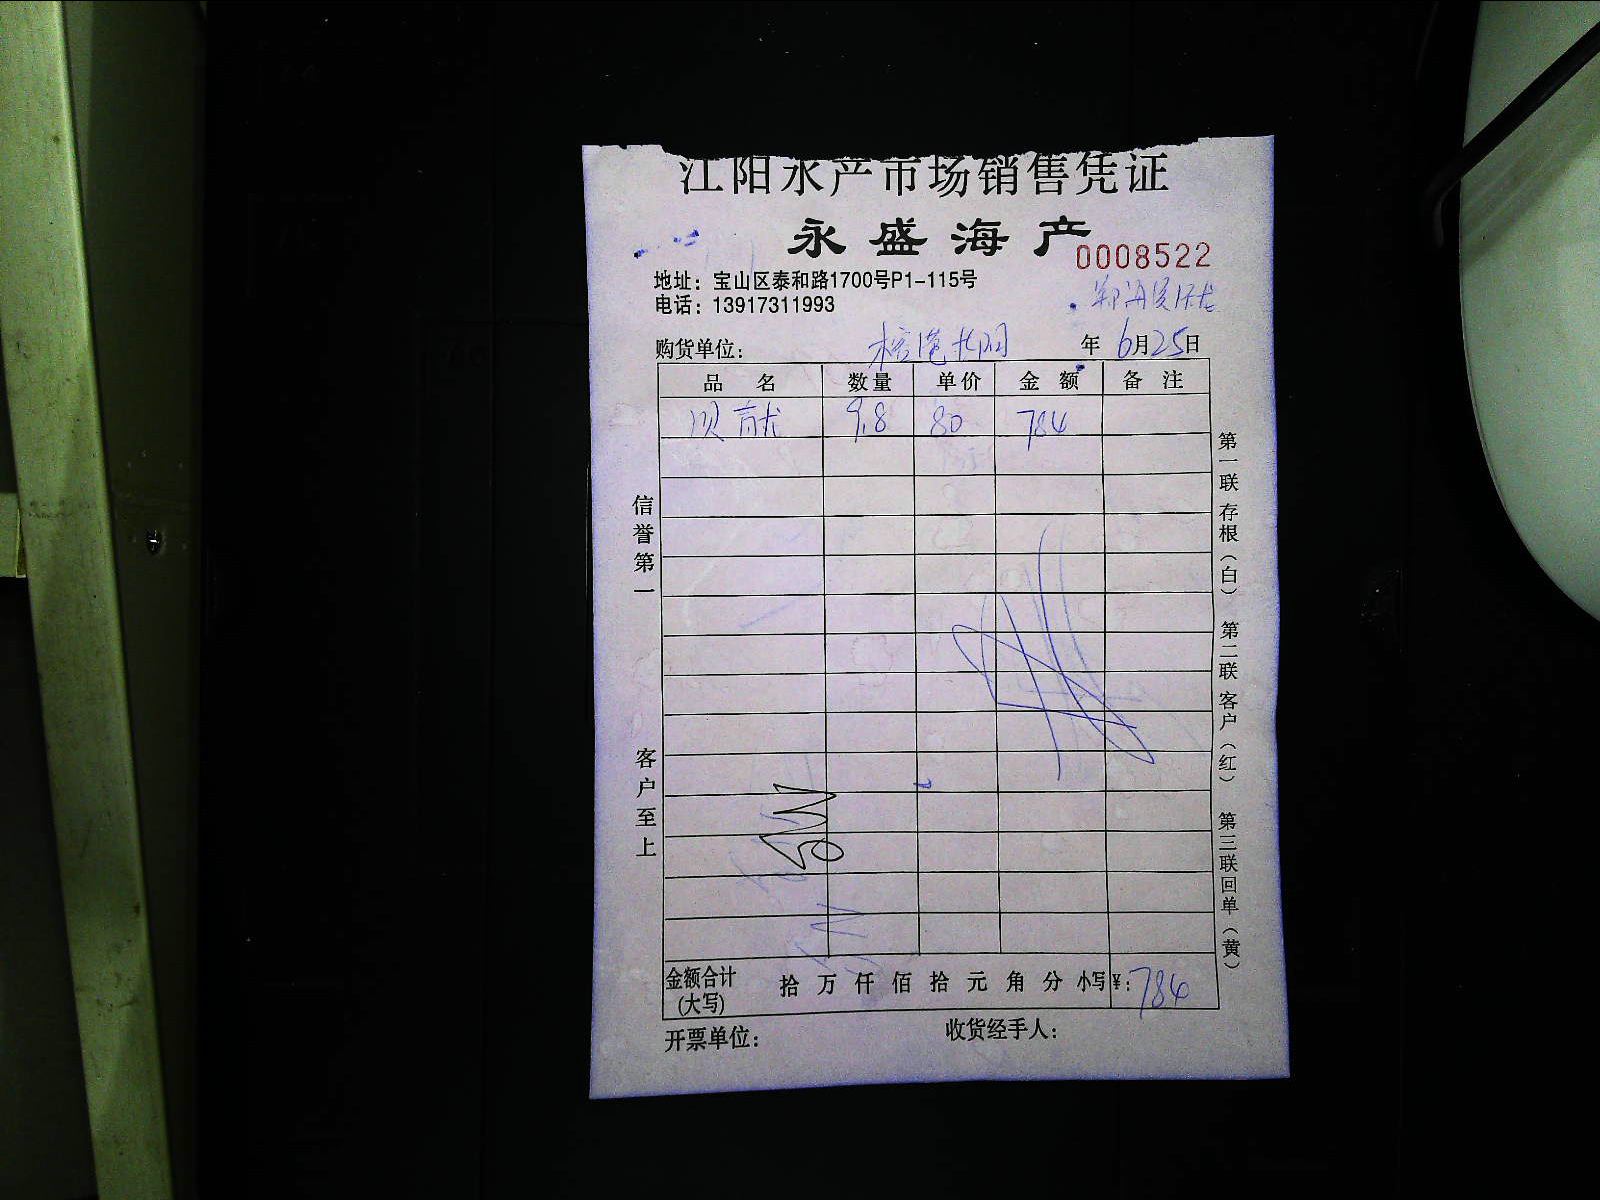 江阳水产市场销售凭证
永盛海产
0008522
地址：宝山区泰和路1700号P1-115号
电话：13917311993
购货单位： 年 6月25日
品 名 数量 单价 金 额 备 注
9.8 80 784
信誉第一
客户至上
第一联 存根（白） 第二联 客户（红） 第三联 回单（黄）
金额合计 拾 万 仟 佰 拾 元 角 分 小写 ¥：784
(大写)
开票单位： 收货经手人：